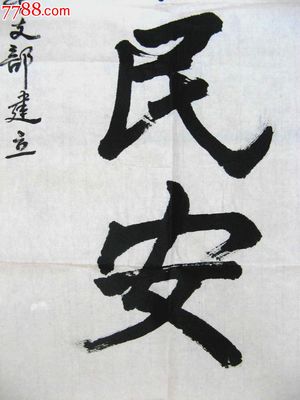 7788.com
民安
支部建立